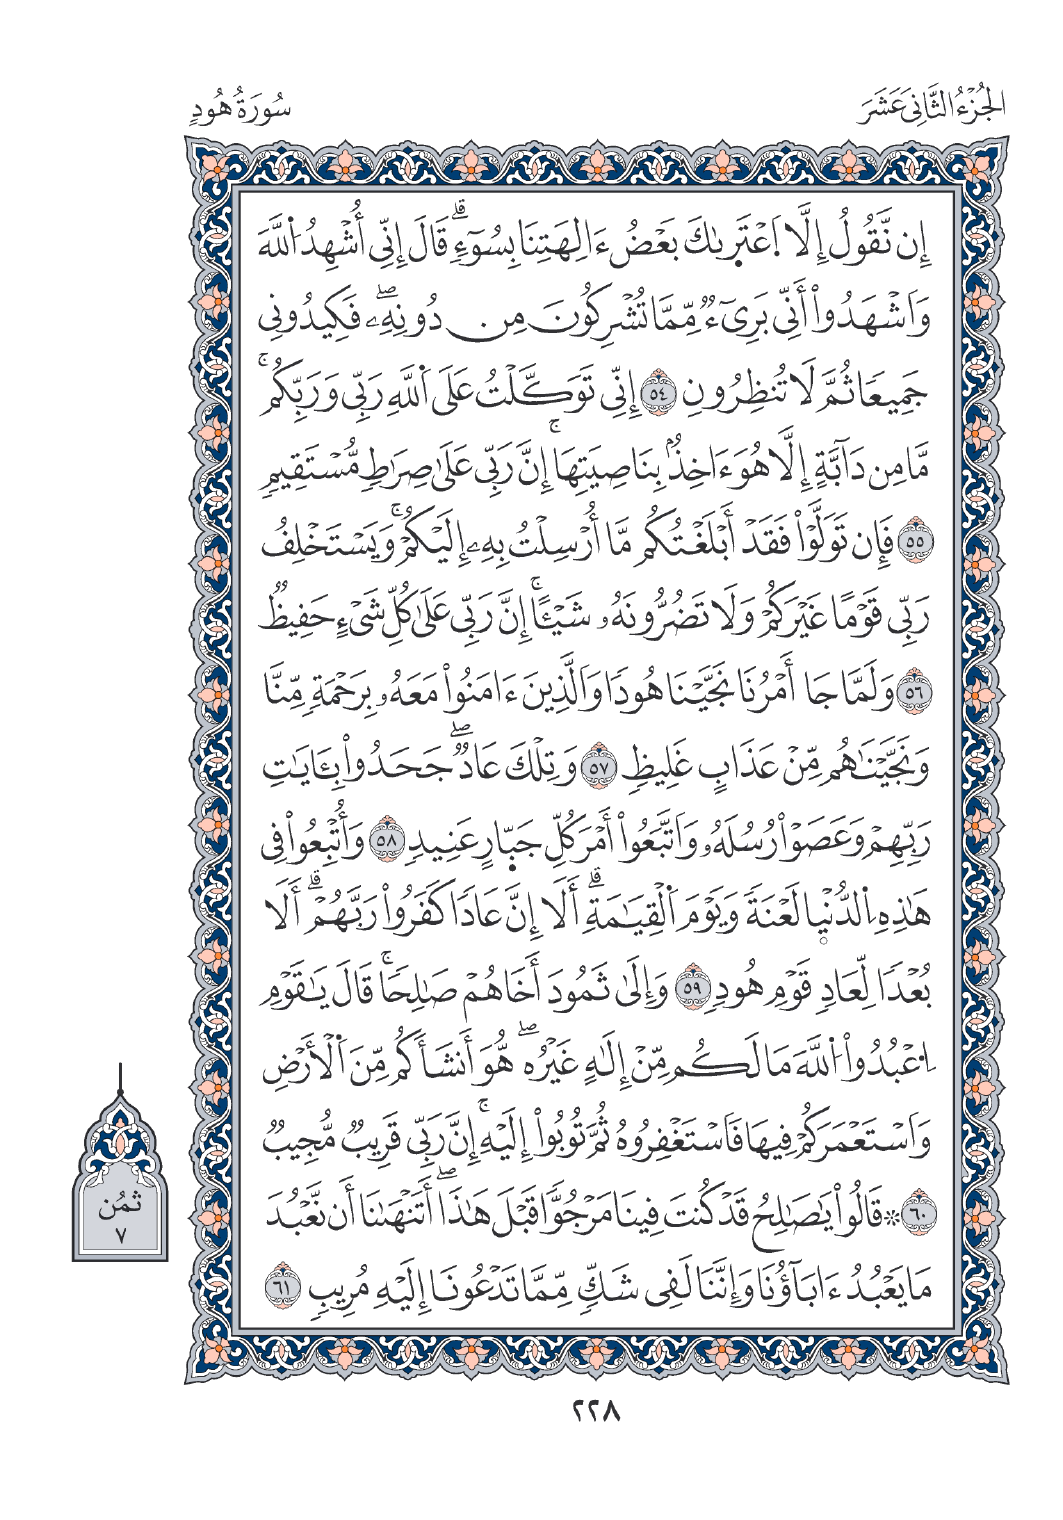 الجُزْءُ الثَّانِيَ عَشَرَ
سُورَةُ هُودٍ
إِن نَّقُولُ إِلَّا اَ۪عْتَر۪ىٰكَ بَعْضُ ءَالِهَتِنَا بِسُوٓءٍۗ قَالَ إِنِّي أُشْهِدُ اُ۬للَّهَ
وَاَشْهَدُوٓاْ أَنِّي بَرِيٓءٌ مِّمَّا تُشْرِكُونَ مِن دُونِهِۦۖ فَكِيدُونِي
جَمِيعٗا ثُمَّ لَا تُنظِرُونِ ٥٤ إِنِّي تَوَكَّلْتُ عَلَى اَ۬للَّهِ رَبِّي وَرَبِّكُمۚ
مَّا مِن دَآبَّةٍ إِلَّا هُوَ ءَاخِذُۢ بِنَاصِيَتِهَاۚ إِنَّ رَبِّي عَلَىٰ صِرَٰطٖ مُّسْتَقِيمٖ
٥٥ فَإِن تَوَلَّوْاْ فَقَدْ أَبْلَغْتُكُم مَّا أُرْسِلْتُ بِهِۦ إِلَيْكُمْۚ وَيَسْتَخْلِفُ
رَبِّي قَوْمًا غَيْرَكُمْ وَلَا تَضُرُّونَهُۥ شَيْـًٔاۚ إِنَّ رَبِّي عَلَىٰ كُلِّ شَيْءٍ حَفِيظٞ
٥٦ وَلَمَّا جَا أَمْرُنَا نَجَّيْنَا هُودٗا وَالَّذِينَ ءَامَنُواْ مَعَهُۥ بِرَحْمَةٖ مِّنَّا
وَنَجَّيْنَٰهُم مِّنْ عَذَابٍ غَلِيظٖ ٥٧ وَتِلْكَ عَادٞۖ جَحَدُواْ بِـَٔايَٰتِ
رَبِّهِمْ وَعَصَوْاْ رُسُلَهُۥ وَاَتَّبَعُواْ أَمْرَ كُلِّ جَبّ۪ارٍ عَنِيدٖ ٥٨ وَأُتْبِعُواْ فِي
هَٰذِهِ اِ۬لدُّنْي۪ا لَعْنَةٗ وَيَوْمَ اَ۬لْقِيَٰمَةِۗ أَلَا إِنَّ عَادٗا كَفَرُواْ رَبَّهُمْۗ أَلَا
بُعْدٗا لِّعَادٖ قَوْمِ هُودٖ ٥٩ وَإِلَىٰ ثَمُودَ أَخَاهُمْ صَٰلِحٗاۚ قَالَ يَٰقَوْمِ
اِ۟عْبُدُواْ اُ۬للَّهَ مَا لَكُم مِّنْ إِلَٰهٍ غَيْرُهُۖ هُوَ أَنشَأَكُم مِّنَ اَ۬لْأَرْضِ
وَاَسْتَعْمَرَكُمْ فِيهَا فَاَسْتَغْفِرُوهُ ثُمَّ تُوبُواْ إِلَيْهِۚ إِنَّ رَبِّي قَرِيبٞ مُّجِيبٞ
٦٠ ۞ قَالُواْ يَٰصَٰلِحُ قَدْ كُنتَ فِينَا مَرْجُوّٗا قَبْلَ هَٰذَاۖ أَتَنْهَىٰنَا أَن نَّعْبُدَ
مَا يَعْبُدُ ءَابَآؤُنَا وَإِنَّنَا لَفِي شَكّٖ مِّمَّا تَدْعُونَا إِلَيْهِ مُرِيبٖ ٦١
ثُمُن
٧
٢٢٨